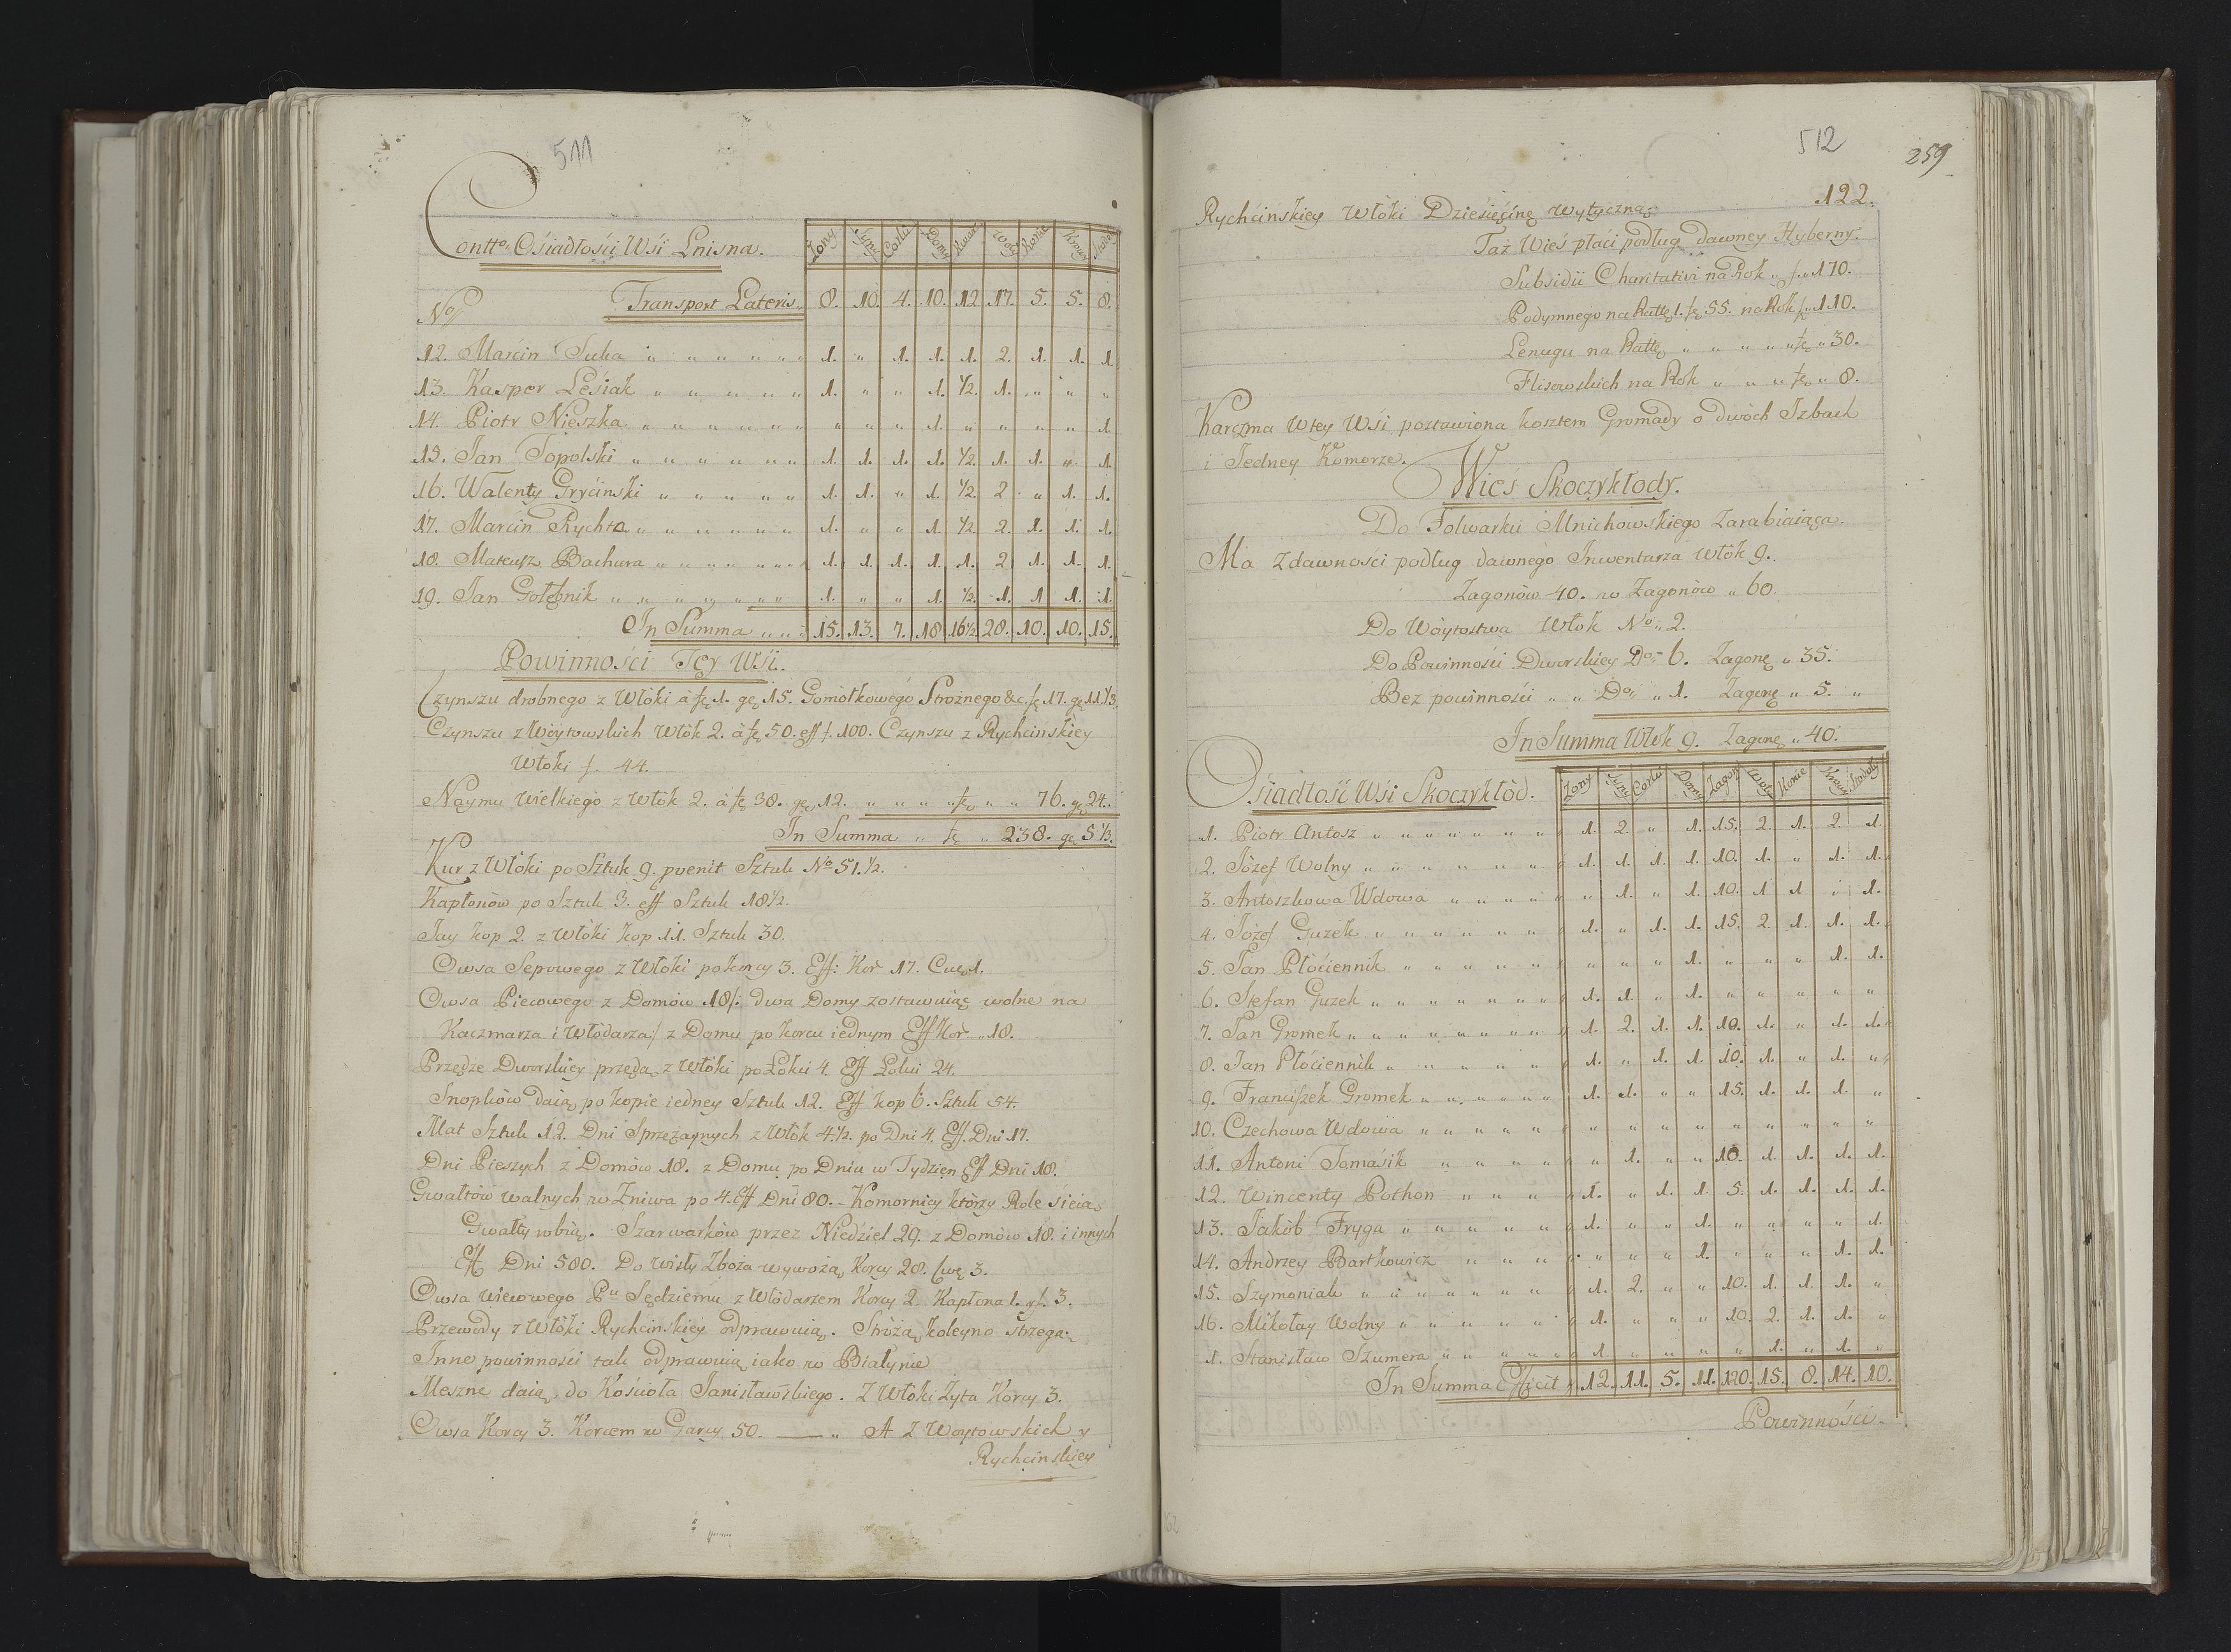 511
Contto. Osiadłości Wśi Lnisna.
Żony Syny Corki Domy Kwar. Woły Konie Krowy Stodoły
No Transport Lateris 8. 10. 4. 10. 12. 17. 5. 5. 8.
12. Marcin Suka " " " " " " 1. " 1. 1. 1. 2. 1. 1. 1.
13. Kasper Leśiak " " " " " " 1. " " 1. 1/2. 1. " " "
14. Piotr Nieszka " " " " " " " " " 1. " " " " 1.
15. Jan Topolski " " " " " " 1. 1. 1. 1. 1/2. 1. 1. " 1.
16. Walenty Gryćinski " " " " " 1. 1. " 1. 1/2. 2. " 1. 1.
17. Marcin Rychta " " " " " " 1. " " 1. 1/2. 2. 1. 1. 1.
18. Mateusz Bachura " " " " " " 1. 1. 1. 1. 1. 2. 1. 1. 1.
19. Jan Gołębnik " " " " " " 1. " " 1. 1/2. 1. 1. 1. 1.
In Summa " " 15. 13. 7. 18. 16 1/2. 28. 10. 10. 15.
Powinnośći Tey Wśi.
Czynszu drobnego z Włóki à fł. 1. gr. 15. Gomółkowego Strożnego &c. fł. 17. gr. 11 1/3.
Czynszu z Woytowskich Włók 2. à fł. 50. eff f. 100. Czynszu z Rychcinskiey
Włoki f. 44.
Naymu Wielkiego z Włók 2. à fł. 38. gr. 12. " " " fł. " " 76. gr. 24.
In Summa " fł. " 238. gr. 5 1/3.
Kur z Włóki po Sztuk 9. pvenit Sztuk No 51. 1/2.
Kapłonów po Sztuk 3. eff Sztuk 18 1/2.
Jay kop 2. z Włóki kop 11. Sztuk 30.
Owsa Sepowego z Włóki po korcy 3. Eff: Kor. 17. Cwr. 1.
Owsa Piewowego z Domów 18/: dwa Domy zostawuiąc wolne na
Kaczmarza i Włódarza/ z Domu po korcu iednym Eff Kor. " 18.
Przędze Dworskiey przędą z Włóki po Łokci 4. Eff Łokci 24.
Snopków daią po kopie iedney Sztuk 12. Eff kop 6. Sztuk 54.
Mat Sztuk 12. Dni Sprzężaynych z Włók 4 1/2. po Dni 4. Eff. Dni 17.
Dni Pieszych z Domów 18. z Domu po Dniu w Tydzien Eff Dni 18.
Gwałtów walnych w Żniwa po 4. Eff Dni 80. - Komornicy którzy Role śieią
Gwałty robią. Szarwarków przez Niedźiel 29. z Domów 18. i innych
Eff Dni 580. Do Wisły Zboża wywożą Korcy 28. Cwr. 3.
Owsa Wiewowego Pu Sędziemu z Włódarzem Korcy 2. Kapłona 1. f. 3.
Przewody z Włóki Rychcinskiey odprawuią. Stróżą koleyno strzegą.
Inne powinnośći tak odprawuią iako w Białynie
Meszne daią do Kośćioła Janisławskiego. Z Włóki Żyta Korcy 3.
Owsa Korcy 3. Korcem w Garcy 50. — " A Z Woytowskich y
Rychcinskiey
512
259
122.
Rychćińskiey Włóki Dziesięćinę wytyczną.
Taż Wieś płaći podług dawney Hyberny.
Subsidii Charitativi na Rok " f. " 170.
Podymnego na Rattę 1. fł. 55. na Rok fł. " 110.
Lenugu na Rattę " " " " fł. " 30.
Flisowskich na Rok " " " fł. " 8.
Karczma w tey Wśi postawiona kosztem Gromady o dwóch Izbach
i Jedney Komorze.
Wieś Skoczykłody.
Do Folwarku Mnichowskiego Zarabiaiąca.
Ma z dawnosci podług dawnego Inwentarza Włók 9.
Zagonów 40. w Zagonów " 60.
Do Wóytostwa Włok No " 2.
Do Powinnośći Dworskiey Do " 6. Zagonę " 35.
Bez powinnośći " " Do " 1. Zagonę " 5. "
In Summa Włók 9. Zagonę " 40.
Osiadłość Wśi Skoczykłód.
Żony Syny Corki Domy Zagon. Woły Konie Krowy Stodoły
1. Piotr Antosz " " " " " " 1. 2. " 1. 15. 2. 1. 2. 1.
2. Józef Wolny " " " " " " 1. 1. 1. 1. 10. 1. " 1. 1.
3. Antoszkowa Wdowa " " " " " 1. " 1. 10. 1 1 " 1.
4. Józef Guzek " " " " " " 1. " 1. 1. 15. 2. 1. 1. 1.
5. Jan Płóćiennik " " " " " " " " 1. " " " 1. 1.
6. Stefan Guzek " " " " " " 1. 1. " 1. " " " " "
7. Jan Gromek " " " " " " 1. 2. 1. 1. 10. 1. " 1. 1.
8. Jan Płóćiennik " " " " " 1. " 1. 1. 10. 1. " 1. "
9. Franciszek Gromek " " " " " 1. 1. " " 15. 1. 1. 1. "
10. Czechowa Wdowa " " " " " " " " " " " " " "
11. Antoni Tomaśik " " " " " 1. " " 10. 1. 1. 1. 1.
12. Wincenty Pothon " " " " 1. " 1. 1. 5. 1. 1. 1. 1.
13. Jakób Fryga " " " " " 1. " " 1. " " " " 1.
14. Andrzey Bartkowicz " " " " " " " 1. " " " 1. 1.
15. Szymoniak " " " " " " 1. 2. " " 10. 1. 1. 1. "
16. Mikołay Wolny " " " " " 1. " " " 10. 2. 1. 1. "
1. Stanisław Szumera " " " " 1. " " " " 1. " 1. "
In Summa Efficit " 12. 11. 5. 11. 120. 15. 8. 14. 10.
Powinnośći.